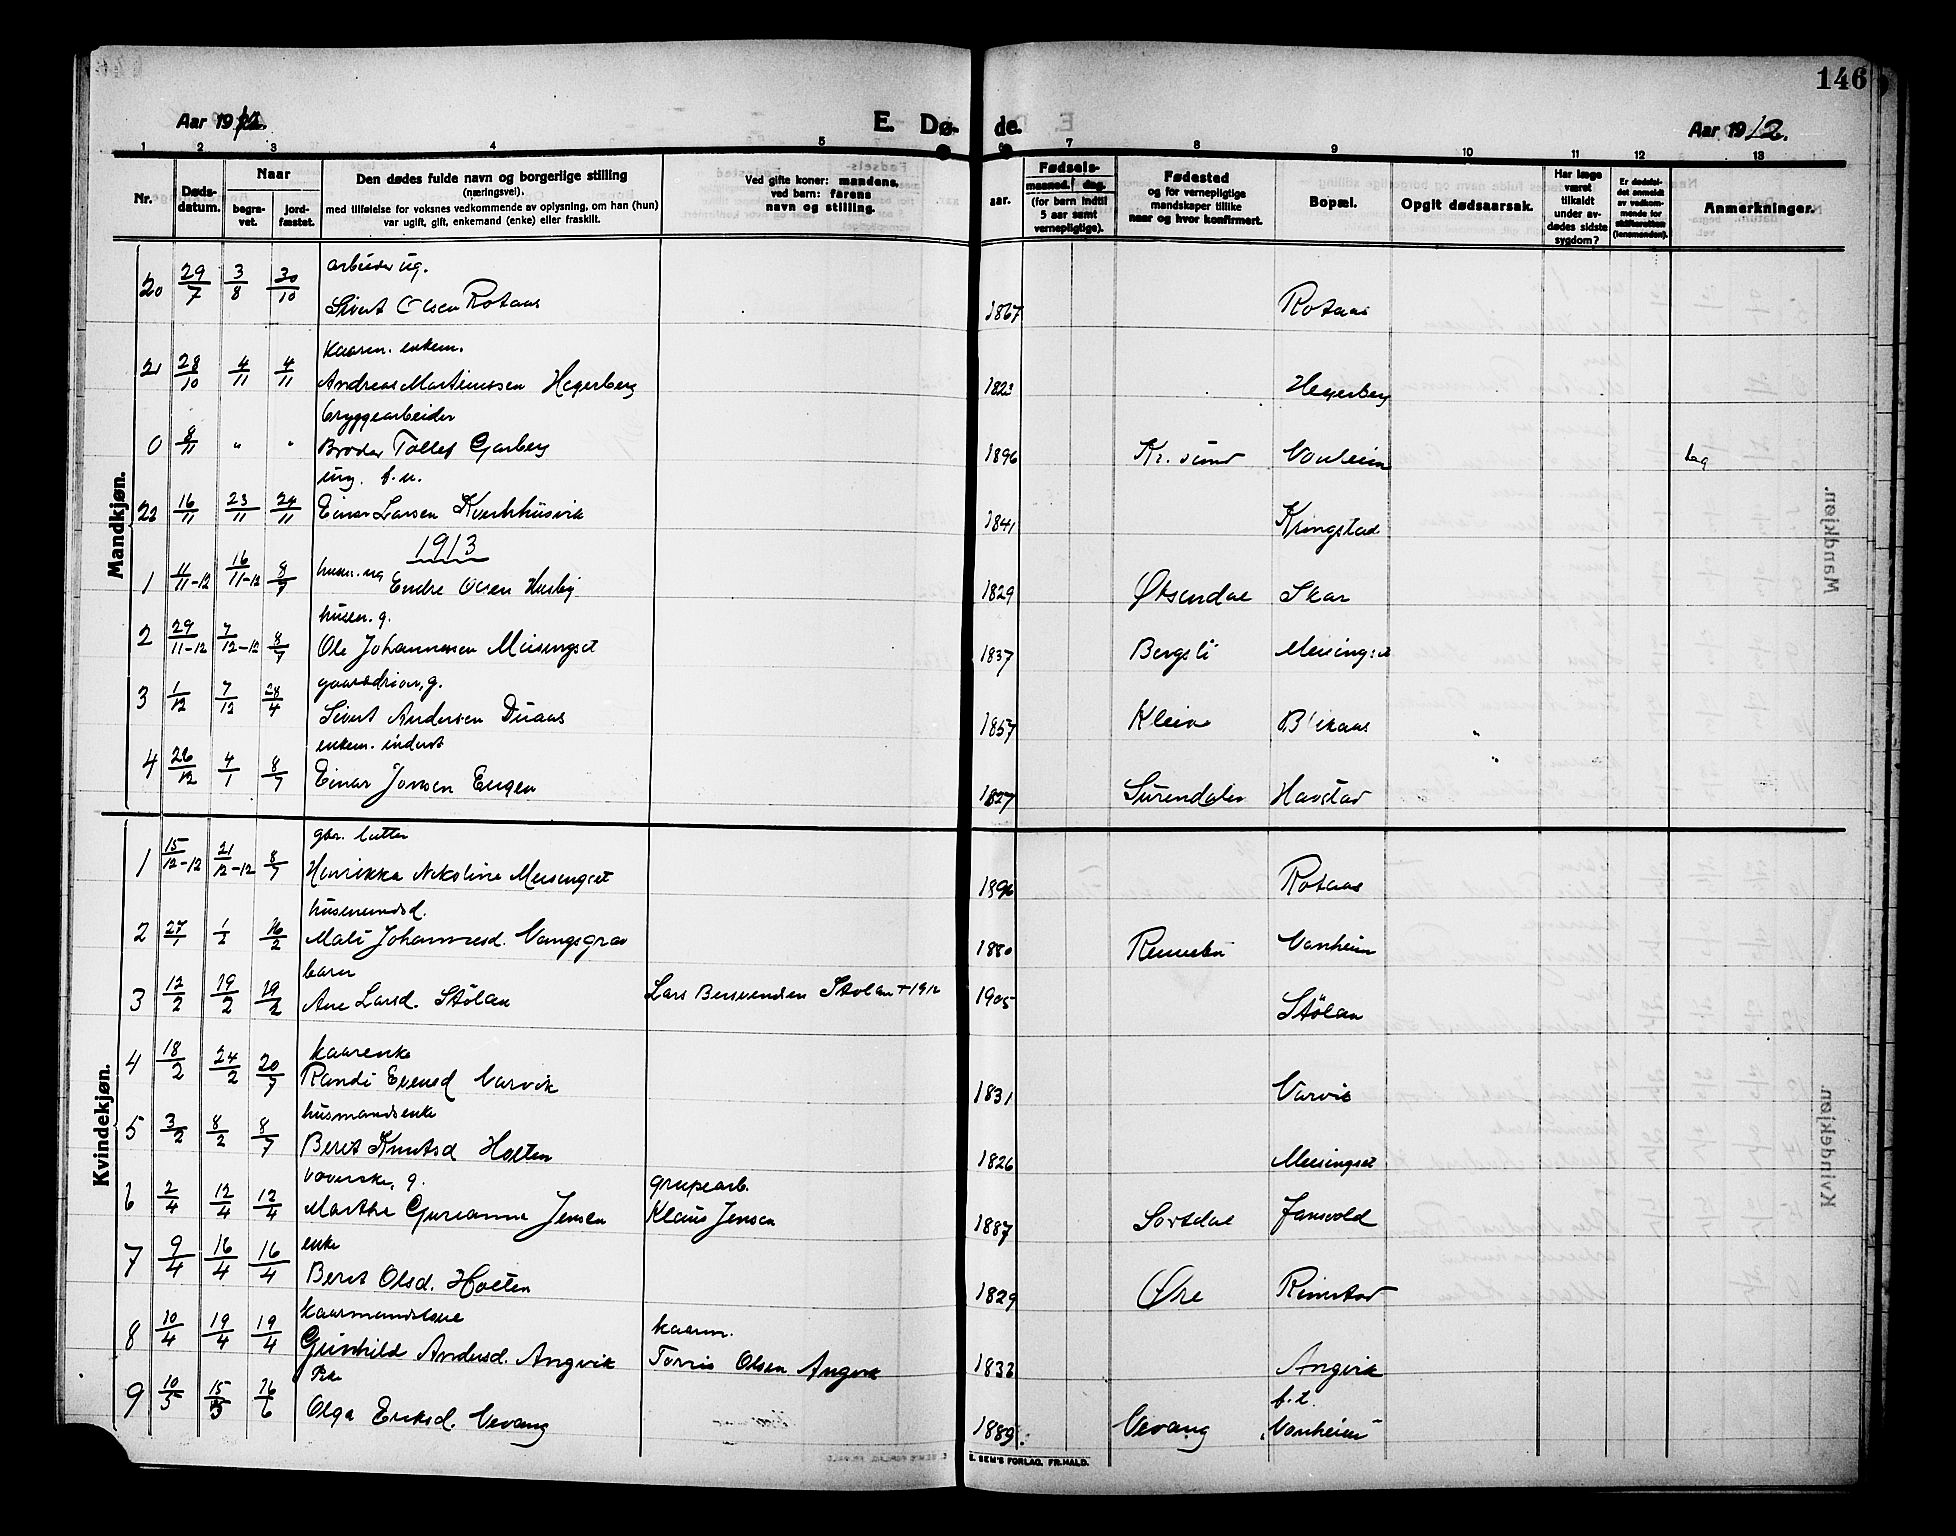 146
Aar 1912.
E. Dø-
de.
Aar 1912.
1 2 3 4 5 6 7 8 9 10 11 12 13
Nr.
Døds-
datum.
Naar
begra-
vet.
jord-
fæstet.
Den dødes fulde navn og borgerlige stilling
(næringsvei).
med tilføielse for voksnes vedkommende av oplysning, om han (hun)
var ugift, gift, enkemand (enke) eller fraskilt.
Ved gifte koner: mandens,
ved barn: farens
navn og stilling.
aar.
Fødsels-
maaned. dag.
(for børn indtil
5 aar samt
vernepligtige).
Fødested
og for vernepligtige
mandskaper tillike
naar og hvor konfirmert.
Bopæl.
Opgit dødsaarsak.
Har læge
været
tilkaldt
under av-
dødes sidste
sygdom?
Er dødsfal-
det anmeldt
av vedkom-
mende for
skifteretten
(lensmanden).
Anmerkninger.
Mandkjøn.
arbeider ug.
20 29/7 3/8 30/10 Sivert Olsen Rotaas 1867 Rotaas
kaarm. enkem.
21 28/10 4/11 4/11 Andreas Martinussen Hegerberg 1823 Hegerberg
bryggearbeider
0 8/11 " " Broder Tollef Garberg 1896 Kr. sund Vonheim
ung. f.n.
22 16/11 23/11 24/11 Einar Larsen 1841 Kringstad
1913
1 11/11-12 16/11-12 8/7 husm. ug Endre Olsen Husby 1829 Øksendal Skar
husm. g.
2 29/11-12 7/12-12 8/7 Ole Johannesen Meisingset 1837 Bergsli Meisingset
g.
3 1/12 7/12 28/4 Sivert Andersen Duaas 1857 Kleive
enkem. inderst
4 26/12 4/1 8/7 Einar Jonsen Engen 1827 Surendalen Havstad
Kvindekjøn.
gbr. datter
1 15/12-12 21/12-12 8/7 Henrikka Nikoline Meisingset 1896 Rotaas
husmandsd.
2 27/1 1/2 16/2 Mali Johannesd. Vangsgrav 1880 Rennebu Vonheim
barn
3 12/2 19/2 19/2 Ane Larsd. Stölan Lars Bersvendsen Stölan +1912 1905 Stölan
kaarenke
4 18/2 24/2 20/7 Randi Evensd Varvik 1831 Varvik
husmandsenke
5 3/2 8/2 8/7 Berit Knutsd Holten 1826 Meisingset
væverske, g. grupearb.
6 2/4 12/4 12/4 Marthe Gurianna Jensen Klaus Jensen 1887 Sortdal Jansvold
enke
7 9/4 16/4 16/4 Berit Olsd. Holten 1829 Øre Rimstad
kaarmandskone kaarm.
8 10/4 19/4 19/4 Gunhild Andersd. Angvik Torris Olsen Angvik 1833 Angvik
Pike f.t.
9 10/5 15/5 16/6 Olga Eriksd. Vevang 1889 Vevang Vonheim
E. SEM'S FORLAG, FR.HALD.